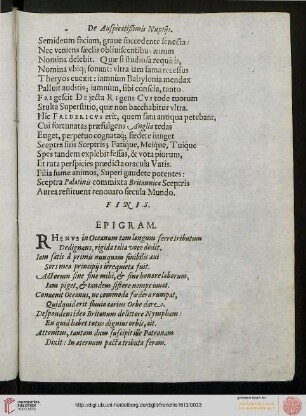 De Auspicatissimis Nuptijs.
Semideum sticiam, graue succedente senecta:
Nec veniens sæclis obliuiscentibus æuum
Nomina delebit. Quæ si studiosa requiris,
Nomina vbiq; sonant: vltra iam fama recessus
Theryos euexit: iamnúm Babylonia mendax
Palluit auditis; iamnúm, sibi conscia, tanto
Fatgescit Dejecta Regens Custode tuorum
Stulta Superstitio, quæ non bacchabitur vltra.
Hic Fridericus erit, quem fata antiqua petebant,
Cui fortunatas præfulgens Anglia tedas
Euget, perpetuo cognatoq; fœdere iunget
Sceptra suis Sceptris; Fatique, Meique, Tuique
Spes tandem explebit fessas, & vota piorum,
Et rata perspicies prædicta oracula Vatis.
Filia summe animos, Superi gaudete potentes:
Sceptra Palatina commixta Britannica Sceptris
Aurea restituent renouato sæcula Mundo.
FINIS.
EPIGRAM.
RHenus in Oceanum tam longum ferre tributum
Dedignans, rigida talia voce dedit,
Iam satis à primis nunquam
Sors mea principijs irrequieta fuit.
Actorum sine fine mihi, & sine honore laborum,
Iam piget, & tandem sistere nempe iuuat.
Conuenit Oceanus, ne commoda fœdera rumpat,
Quidquid erit fluuio carius Orbe dari.
Despondens ideo Britonum de littore Nympham:
En quod habet totus dignius orbis, ait.
Attonitus, tantam dum suscipit ille Patronam
Dixit: In æternum pacta tributa feram.
http://digi.ub.uni-heidelberg.de/diglit/franchis1613/0033